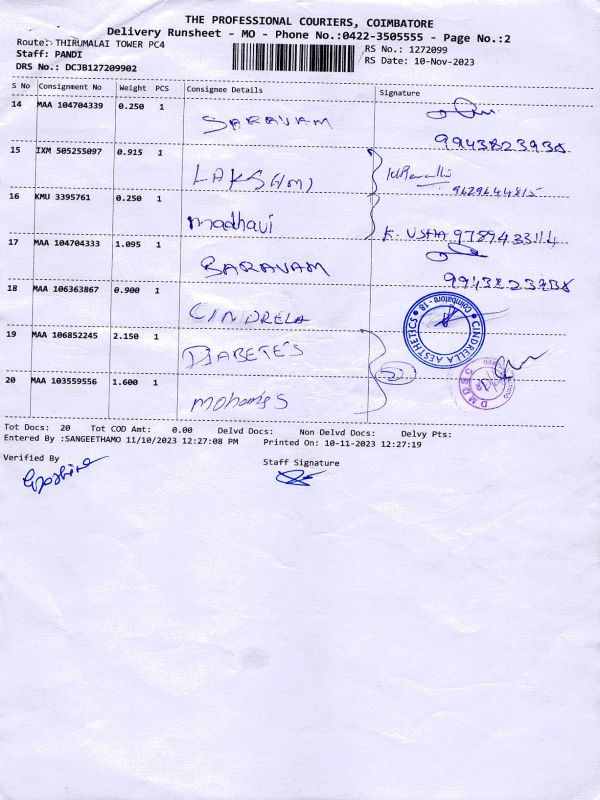 THE PROFESSIONAL COURIERS, COIMBATORE
Delivery Runsheet - MO - Phone No.:0422-3505555 - Page No.:2
Route: THIRUMALAI TOWER PC4 RS No.: 1272099
Staff: PANDI RS Date: 10-Nov-2023
DRS No.: DCJB127209902
S No Consignment No Weight PCS Consignee Details Signature
14 MAA 104704339 0.250 1 SARAVAM
9943823938
15 IXM 505255097 0.915 1 LAKSHMI
9629644815
16 KMU 3395761 0.250 1 madhavi
K. USHA 9789433114
17 MAA 104704333 1.095 1 SARAVAM
9943823938
18 MAA 106363867 0.900 1 CINDRELA
CINDRELLA AESTHETICS Coimbatore - 18
19 MAA 106852245 2.150 1 DIABETE'S
2
20 MAA 103559556 1.600 1
Tot Docs: 20 Tot COD Amt: 0.00 Delvd Docs: Non Delvd Docs: Delvy Pts:
Entered By :SANGEETHAMO 11/10/2023 12:27:08 PM Printed On: 10-11-2023 12:27:19
Verified By Staff Signature